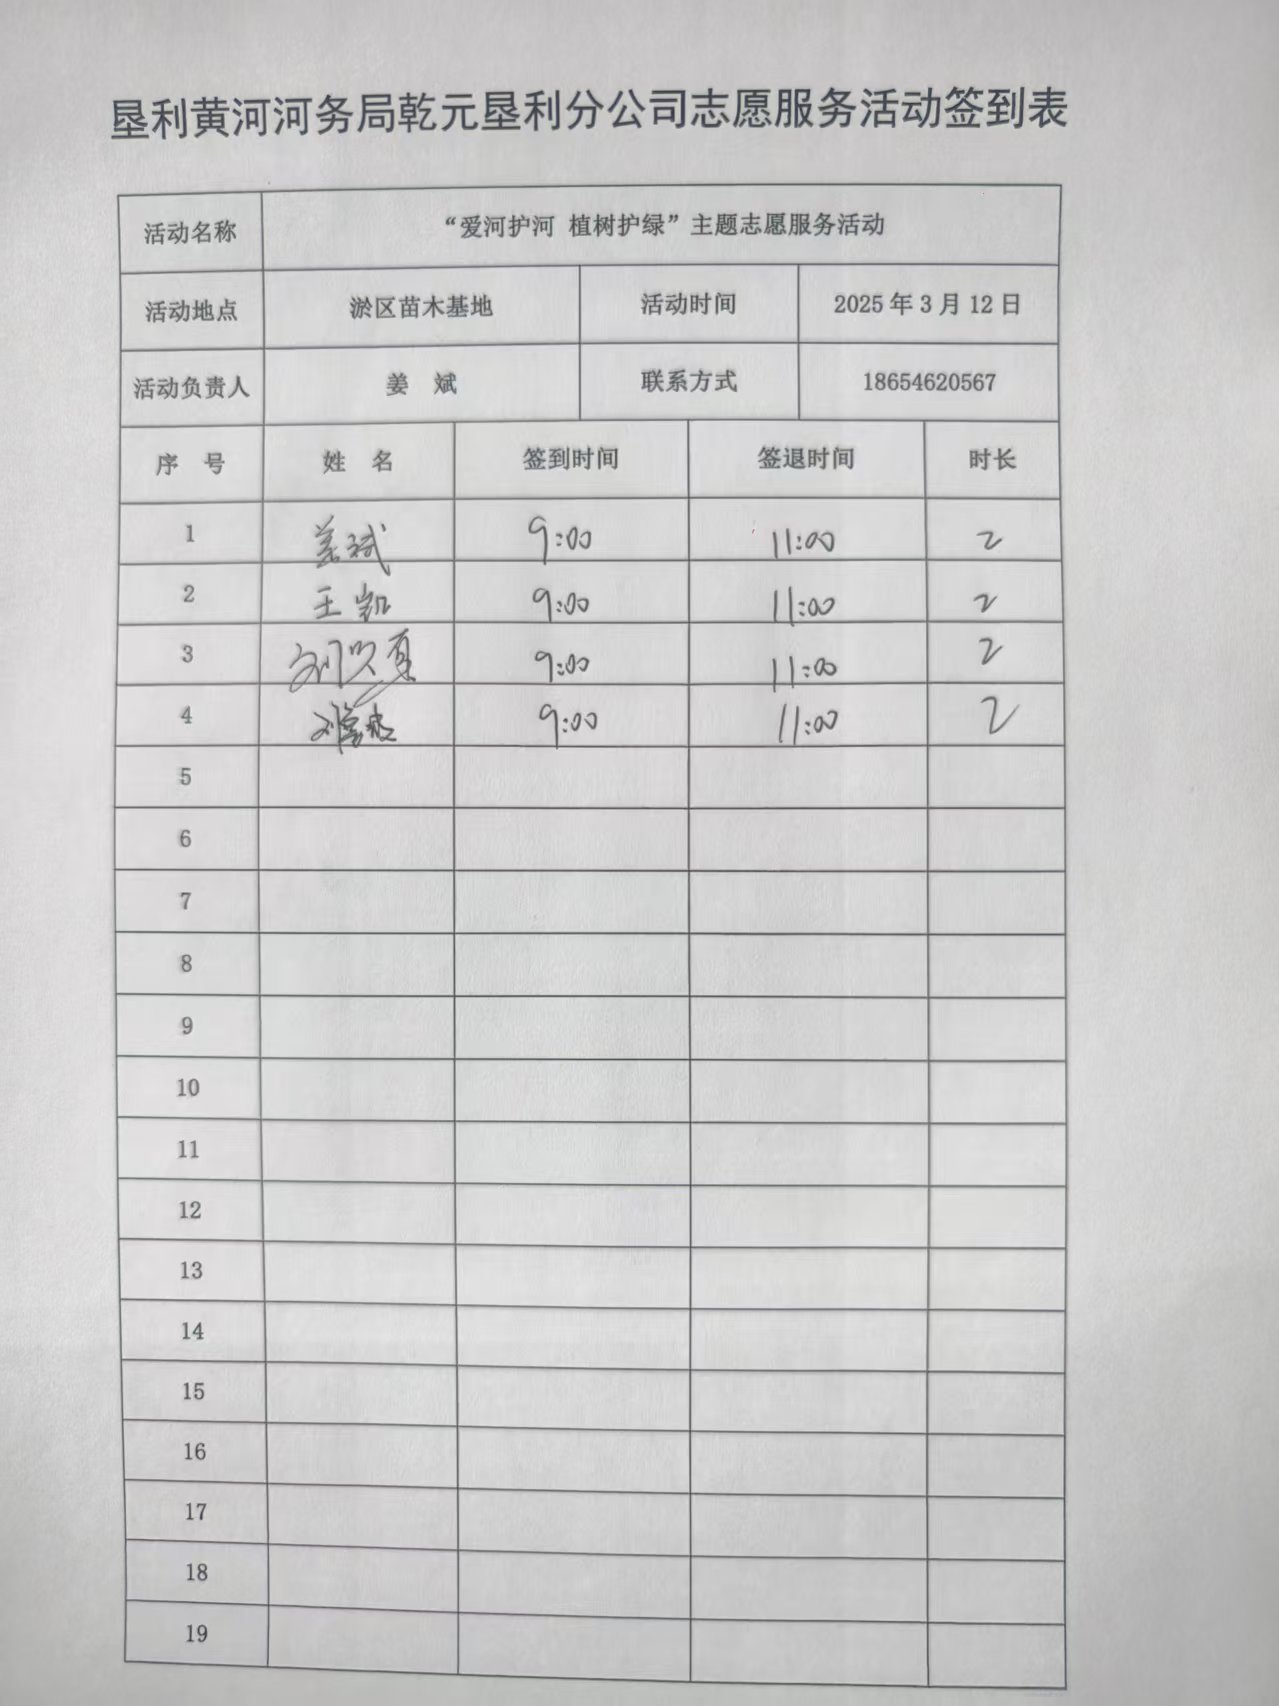 垦利黄河河务局乾元垦利分公司志愿服务活动签到表
活动名称 “爱河护河 植树护绿”主题志愿服务活动
活动地点 淤区苗木基地 活动时间 2025年3月12日
活动负责人 姜 斌 联系方式 18654620567
序 号 姓 名 签到时间 签退时间 时长
1 姜斌 9:00 11:00 2
2 王凯 9:00 11:00 2
3 9:00 11:00 2
4 9:00 11:00 2
5
6
7
8
9
10
11
12
13
14
15
16
17
18
19